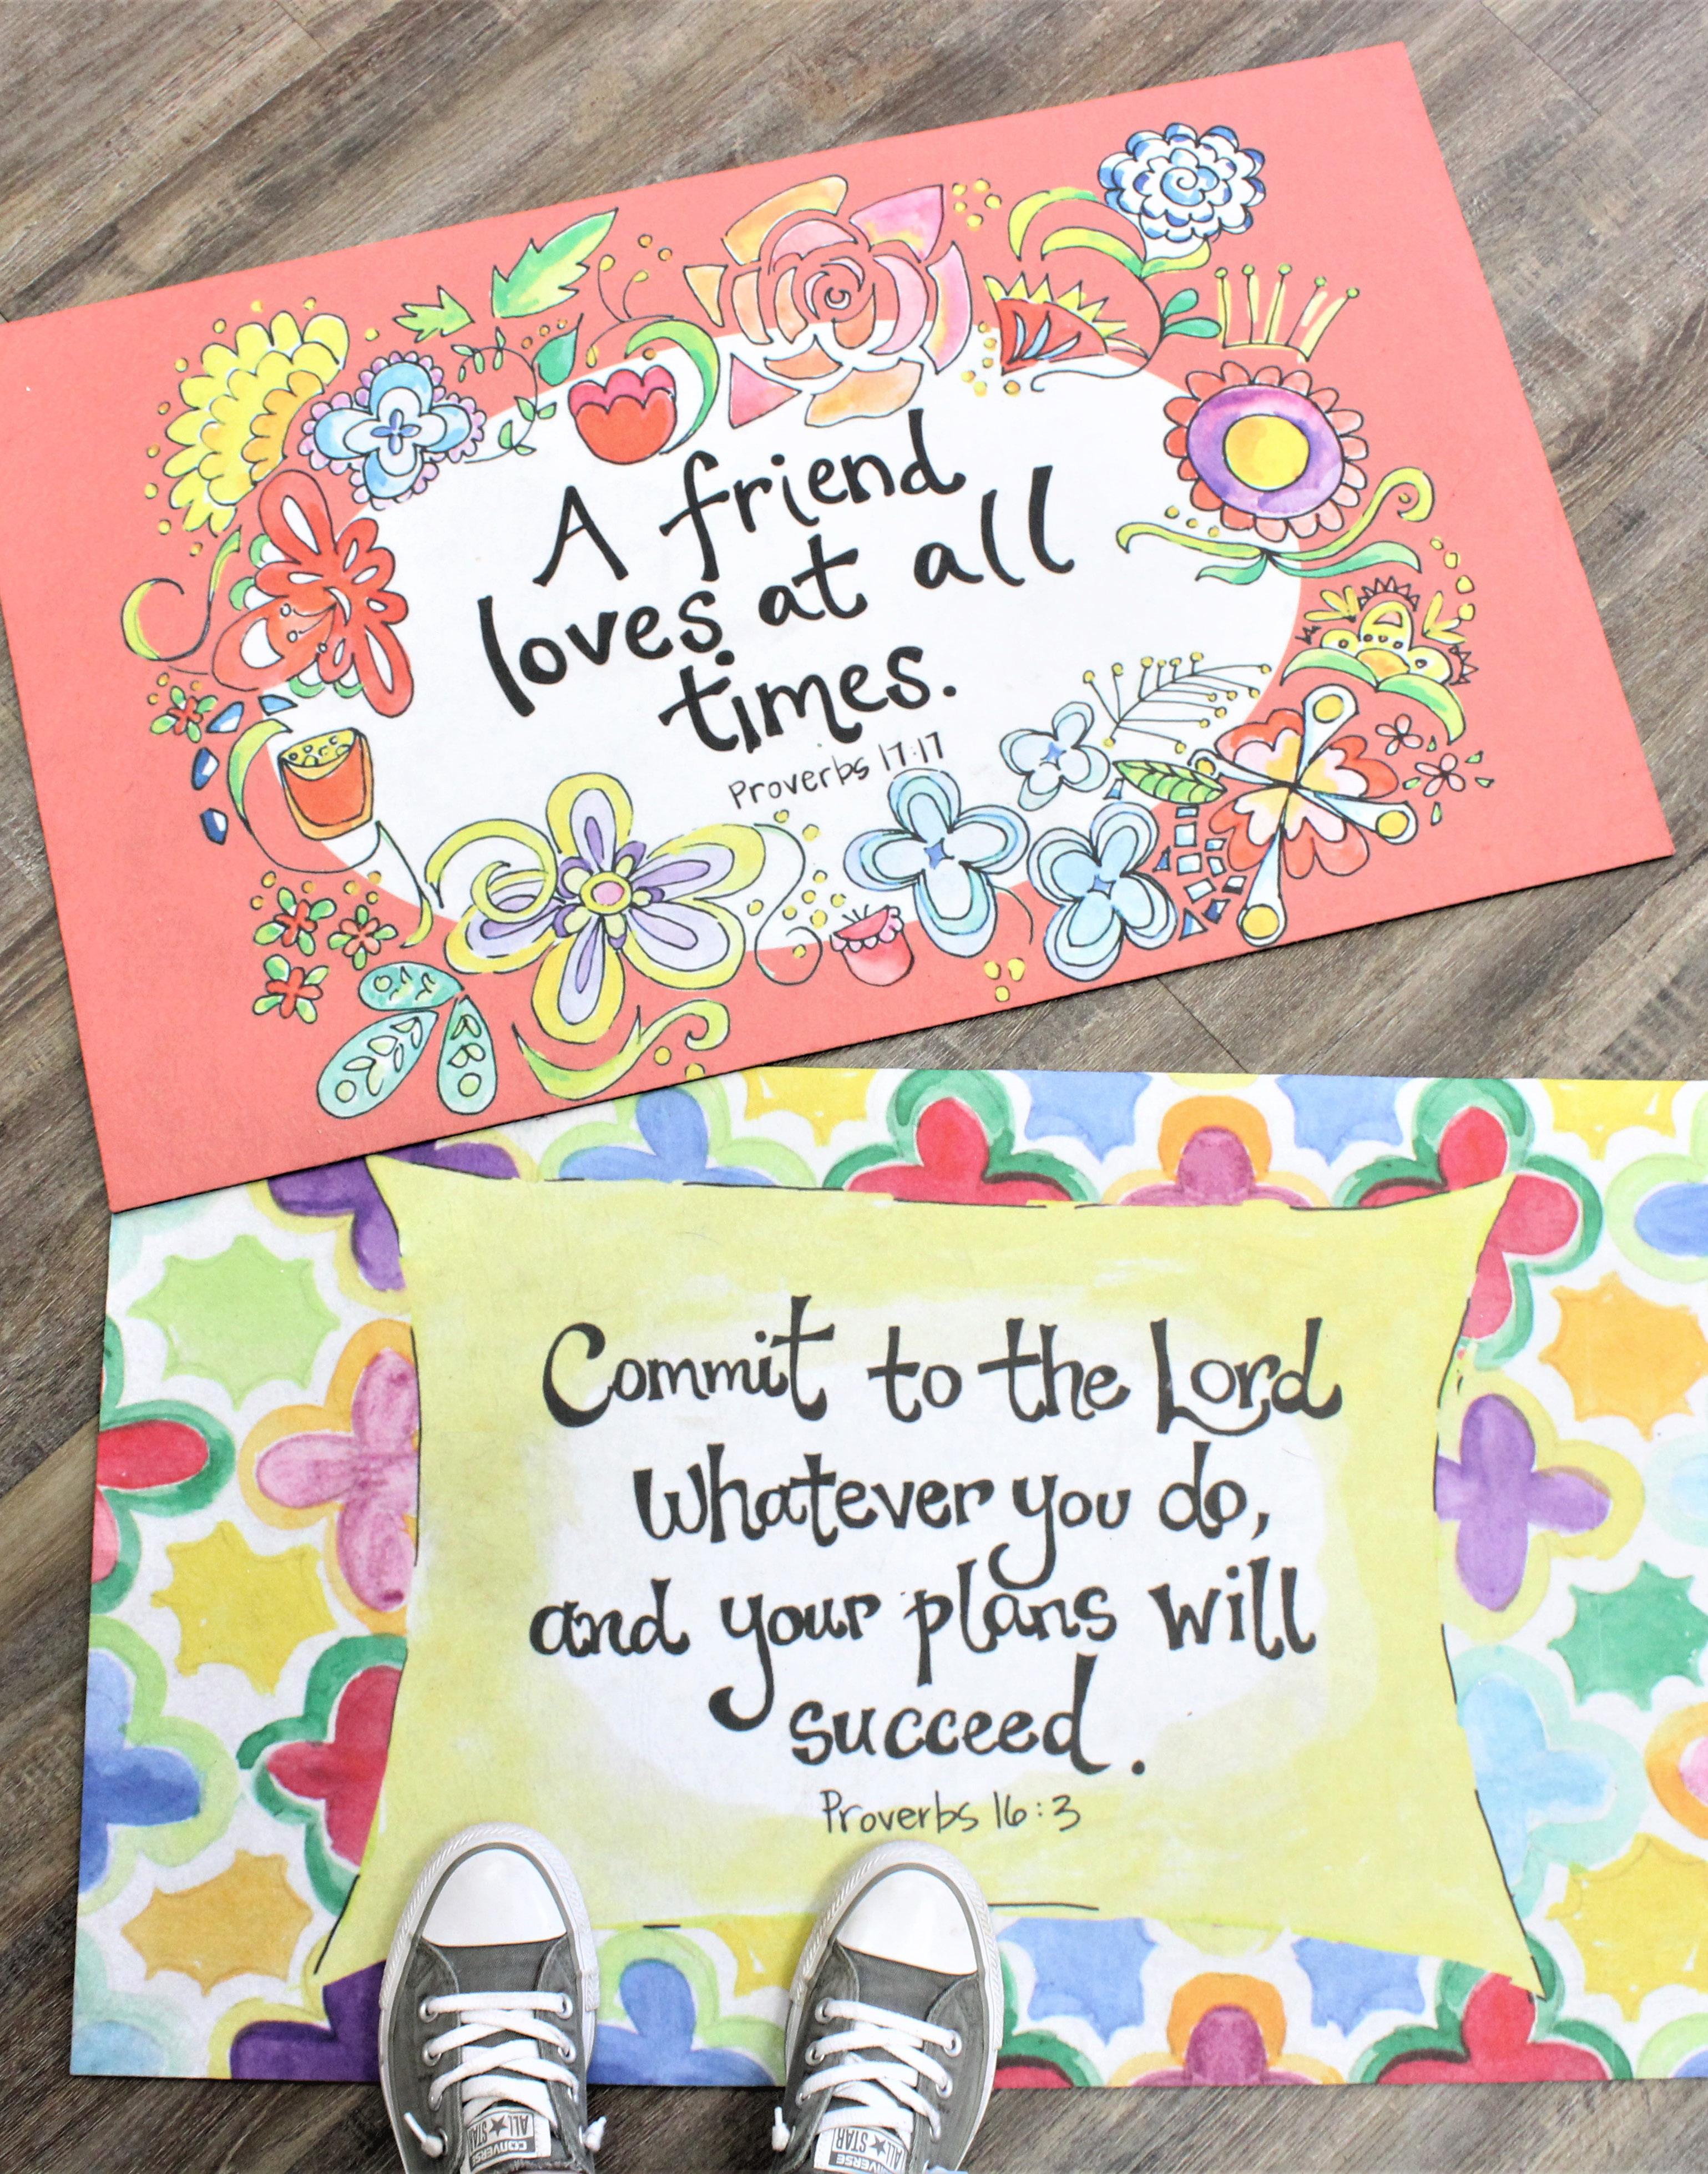 A friend
loves at all
times.
Proverbs 17:17
Commit to the Lord
whatever you do,
and your plans will
succeed.
Proverbs 16:3
CONVERSE
ALL ★ STAR
CONVERSE
ALL ★ STAR